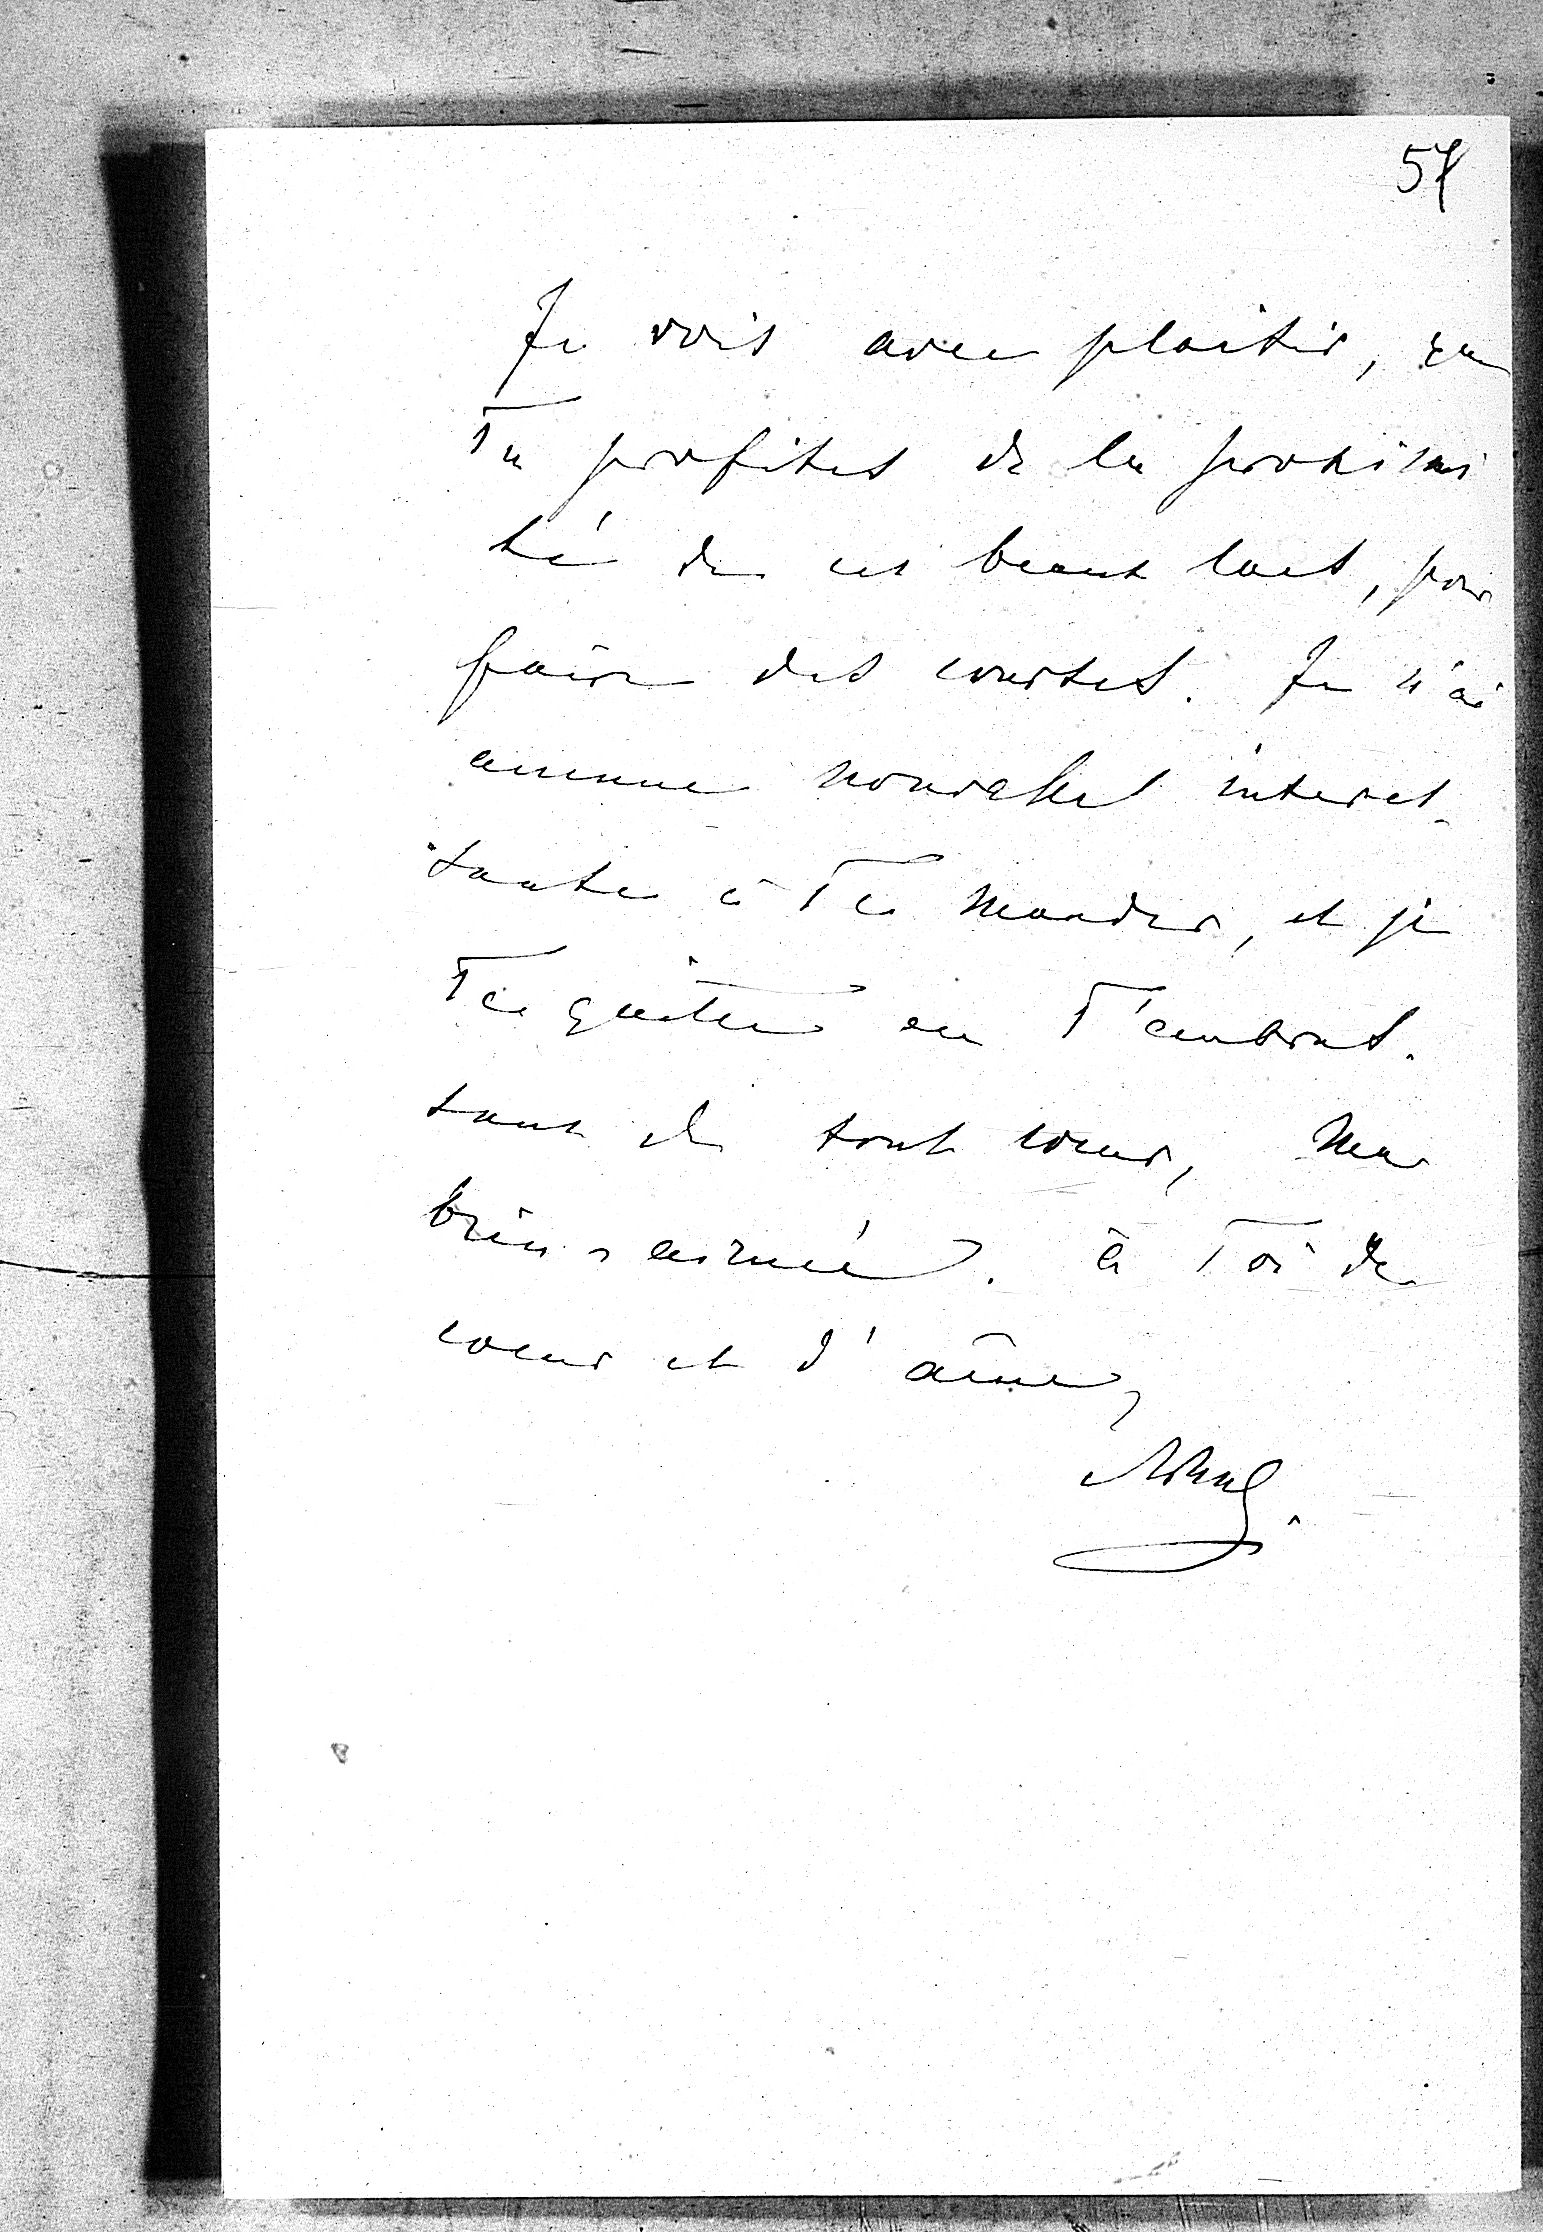 57
Je vois avec plaisir, que
Tu profites de la proximi
té de ces beaux lacs, pour
faire des courses. Je n'ai
aucune nouvelle interes-
sante à Te mander, et je
Te quitte en T'embras-
sant de tout coeur, ma
bien-aimée. à Toi de
coeur et d'âme,